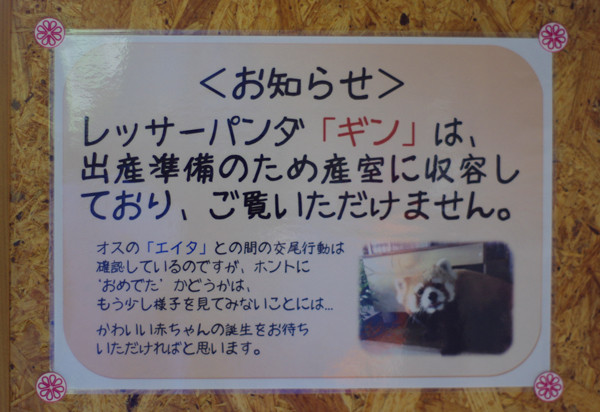 ＜お知らせ＞
レッサーパンダ「ギン」は、
出産準備のため産室に収容し
ており、ご覧いただけません。
オスの「エイタ」との間の交尾行動は
確認しているのですが、ホントに
“おめでた”かどうかは、
もう少し様子を見てみないことには…
かわいい赤ちゃんの誕生をお待ち
いただければと思います。